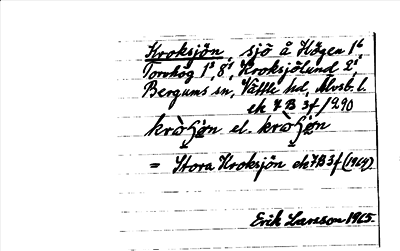 Kroksjön, sjö å Högen 1⁶
Torskog 1³, 8¹, Kroksjölund 2¹,
Bergums sn, Vättle hd, Älvsb. l.
ek 7B 3f/290
el.
= Stora Kroksjön ek 7B3f (1964)
Erik Larsson 1965.